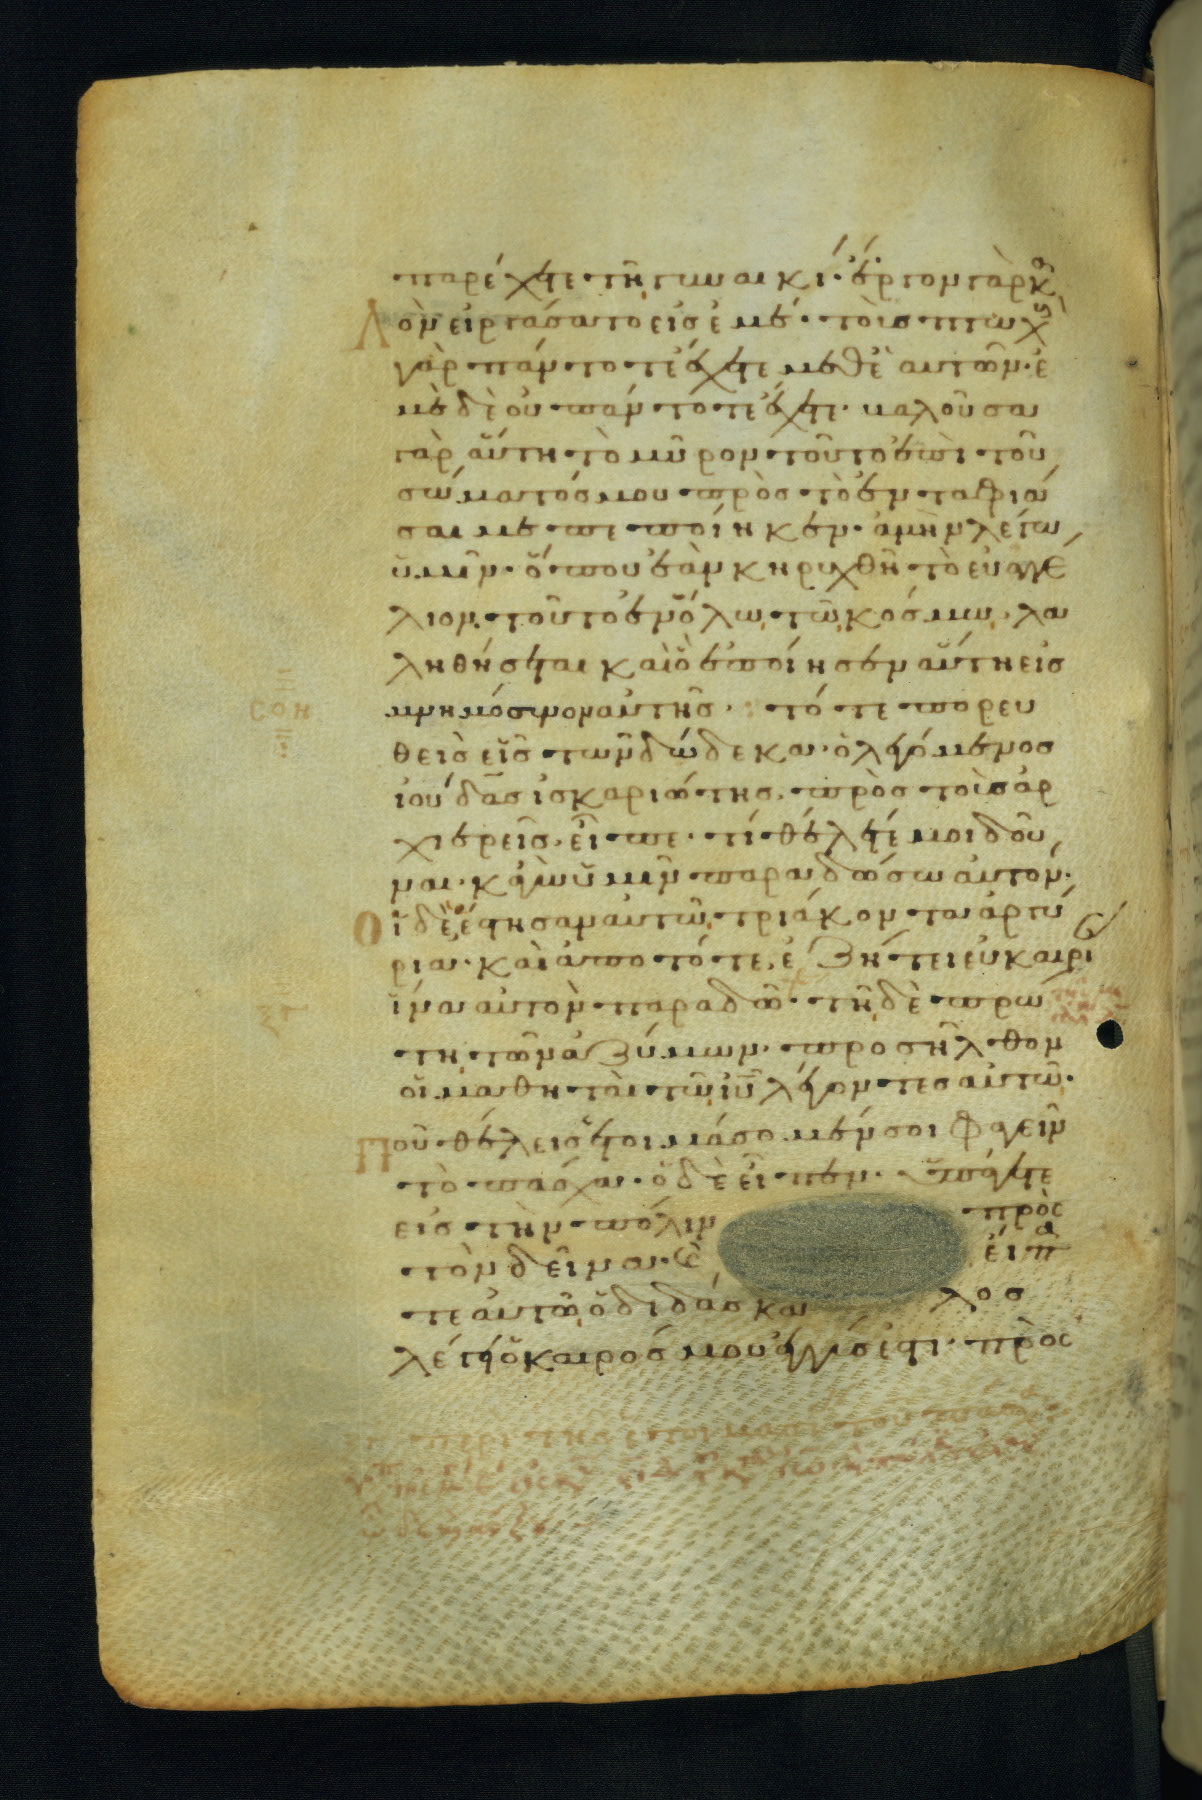 παρέχετε τῆ γυναικί· ἔργον γὰρ κα
λὸν εἰργάσατο εἰς ἐμέ· τοὺς πτωχοὺς
γὰρ πάντοτε ἔχετε μεθ' ἑαυτῶν· ἐ
μὲ δὲ οὐ πάντοτε ἔχετε· βαλοῦσα
γὰρ αὕτη τὸ μῦρον τοῦτο ἐπὶ τοῦ
σώματός μου πρὸς τὸ ἐνταφιά
σαι με πεποίηκεν· ἀμὴν λέγω
ὑμῖν· ὅπου ἐὰν κηρυχθῆ τὸ εὐαγγέ
λιον τοῦτο ἐν ὅλω τῶ κόσμω, λα
ληθήσεται καὶ ὃ ἐποίησεν αὕτη εἰς
μνημόσυνον αὐτῆς· τότε πορευ
θεὶς εἷς τῶν δώδεκα· ὁ λεγόμενος
ἰούδας ἰσκαριώτης, πρὸς τοὺς ἀρ
χιερεῖς, εἶπε· τί θέλετέ μοι δοῦ
ναι· κἀγὼ ὑμῖν παραδώσω αὐτόν·
οἱ δὲ ἔστησαν αὐτῶ τριάκοντα ἀργύ
ρια· καὶ ἀπὸ τότε ἐζήτει εὐκαιρί
ἵνα αὐτὸν παραδῶ· τῆ δὲ πρώ
τη τῶν ἀζύμων, προσῆλθον
οἱ μαθηταὶ τῶ ιυ λέγοντες αὐτῶ·
Ποῦ θέλεις ἑτοιμάσομέν σοι φαγεῖν
τὸ πάσχα· ὁ δὲ εἶπεν· ὑπάγετε
εἰς τὴν πόλιν πρὸς
τὸν δεῖνα· εἴπα
τε αὐτῶ ὁ διδάσκαλος
λέγει ὁ καιρός μου ἐγγύς ἐστι· πρὸς